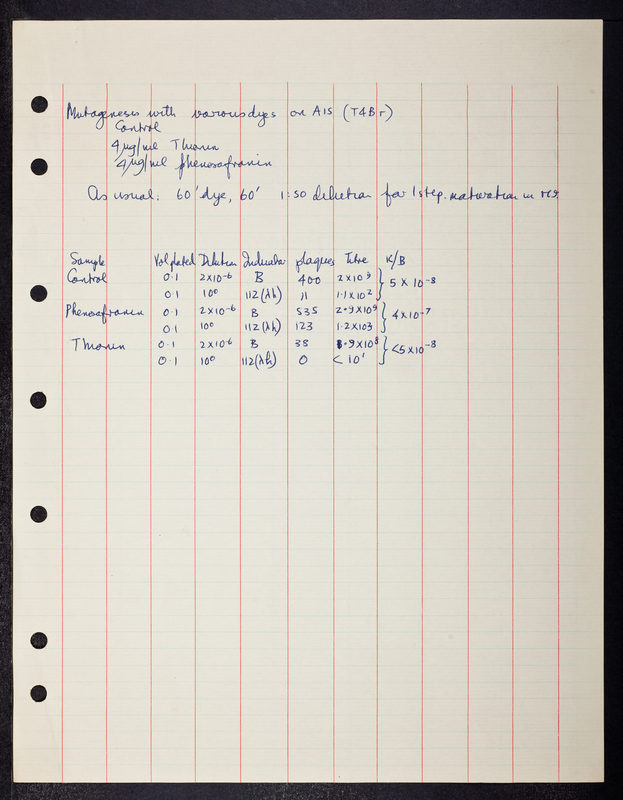 Mutageneses with various dyes on A15 (T4Br)
Control
4µg/ml Thionin
4µg/ml phenosafranin
As usual: 60' dye, 60' 1:50 dilution for 1 step. maturation in
Sample Vol plated Dilution Indicator plaques Titre K/B
Control 0.1 2×10⁻⁶ B 400 2×10⁹ } 5 × 10⁻⁸
0.1 10⁰ 112(λh) 11 1.1×10²
Phenosafranin 0.1 2×10⁻⁶ B 535 2.9×10⁹ } 4×10⁻⁷
0.1 10⁰ 112(λh) 123 1.2×103
Thionin 0.1 2×10⁻⁶ B 38 1.9×10⁸ } <5×10⁻⁸
0.1 10⁰ 112(λh) 0 < 10¹